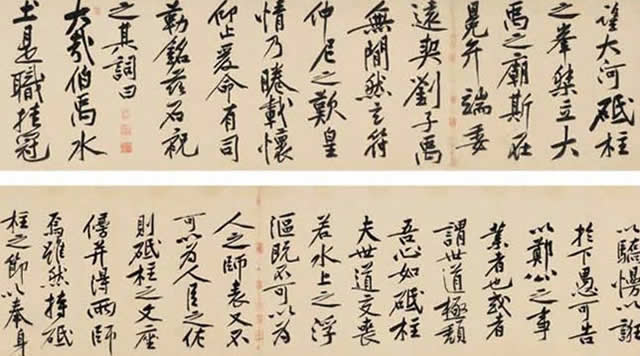 臨大河砥柱
之峯桀立大
禹之廟斯在
冕弁端委
遠契劉子禹
無間然玄符
仲尼之歎皇
情乃睠載懷
仰止爰命有司
勒銘茲石祝
之其詞曰
大哉伯禹水
土是職挂冠
以驕慢以誑
於下愚可告
以鄭公之事
業者也或者
謂世道極頹
吾心如砥柱
夫世道交喪
若水上之浮
漚既不可以為
人之師表又不
可以為人臣之作
則砥柱之文座
傍并得兩師
焉雖然持砥
柱之節以奉身